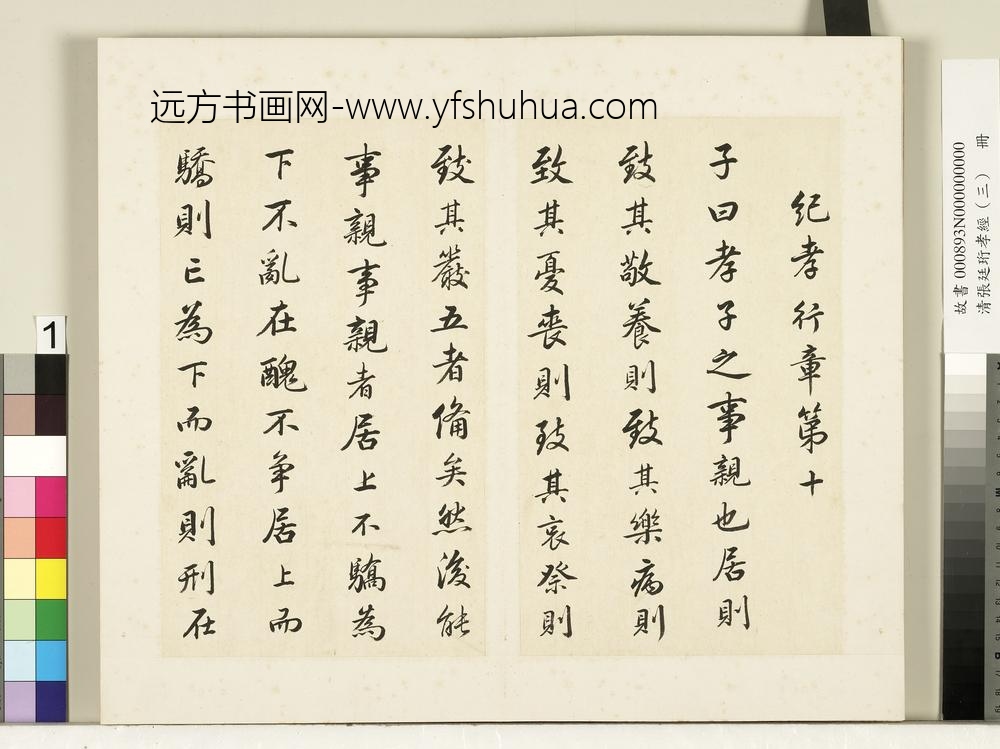 远方书画网-www.yfshuhua.com
紀孝行章第十
子曰孝子之事親也居則
致其敬養則致其樂病則
致其憂喪則致其哀祭則
致其嚴五者備矣然後能
事親事親者居上不驕為
下不亂在醜不争居上而
驕則亡為下而亂則刑在
故書 000893N000000000
清張廷珩孝經（三） 冊
1